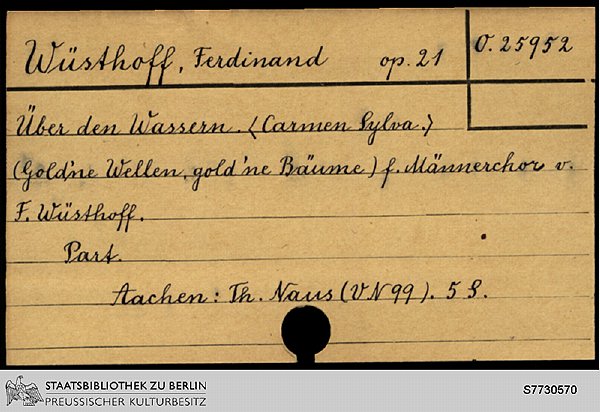 Wüsthoff, Ferdinand op. 21 O. 25952
Über den Wassern. <Carmen Sylva.>
(Gold'ne Wellen, gold'ne Bäume) f. Männerchor v.
F. Wüsthoff.
Part.
Aachen: Th. Naus (VN 99). 5 S.
STAATSBIBLIOTHEK ZU BERLIN
PREUSSISCHER KULTURBESITZ
S7730570